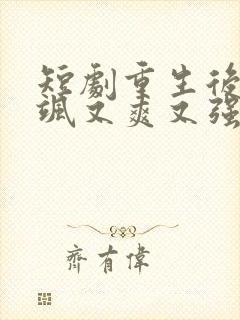 短劇重生後
颯又爽又强
齊有偉